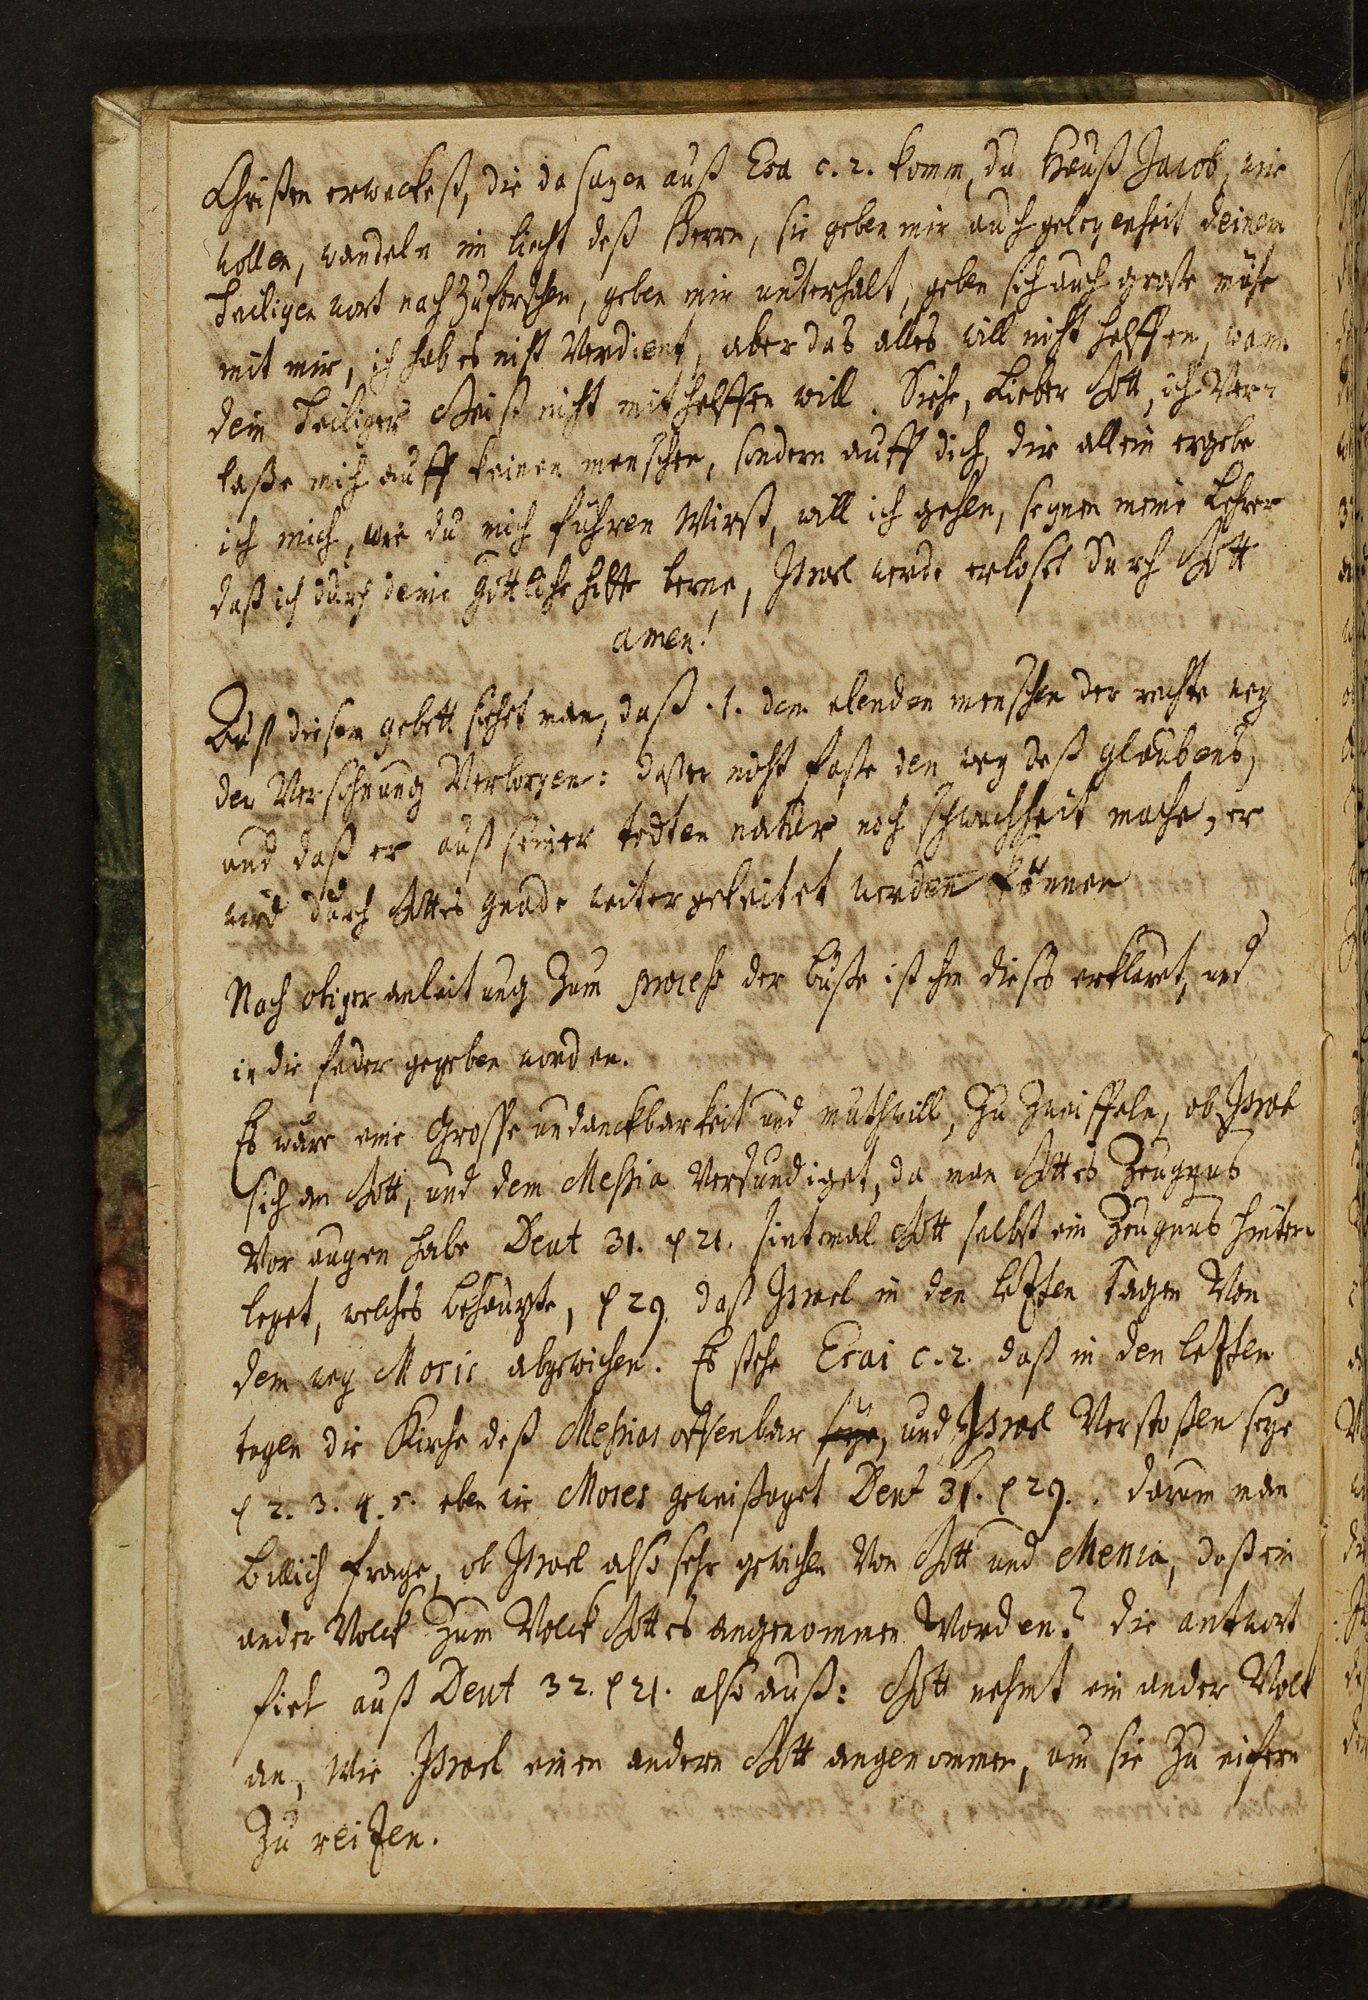 Christen erweckest, die da sagen auß Esa c. 2. komm, du Hauß Jacob, wir
wollen, wandeln im liecht deß Herrn, sie geben mir auch gelegenheit deinem
heiligen wort nach zuforschen, geben mir unterhalt, geben sich auch große mühe
mit mir, ich hab es nicht Verdient, aber das alles will nicht helffen, wann
dein heiliger Geist nicht mit helffen will. Siehe, Lieber Gott, ich Ver-
laße mich auff keinen menschen, sondern auff dich, dir allein ergebe
ich mich, wie du mich führen Wirst, will ich gehen, segnen meine Lehrer
daß ich durch deine Göttliche hilffe lerne, Israel werde erlöset durch Gott
amen!
Auß diesem gebett siehet man, daß .1. dem elenden menschen der rechte weg
der Versöhnung Verborgen: daß er nicht faße den weg deß glaubens,
und daß er auß seiner todten natur noch schwachheit mache, er
wird durch Gottes gnade weiter geleitet werden können
Nach obiger anleitung zum process der buße ist ihm dieses erkläret, und
in die feder gegeben worden.
Es wäre eine Große undanckbarkeit und muthwill, zu zweiffeln, ob Israel
sich an Gott, und dem Messia Versündiget, da man Gottes Zeugnus
Vor augen habe Deut 31. v 21. sintemal Gott selbst ein Zeugnus hinter-
leget, welches behaupte, v 29. daß Israel in den letzten tagen Von
dem weg Mosis abgewichen. Es stehe Esai c. 2. daß in den letzten
tagen die Kirche deß Messias offenbar seye, und Israel Verstoßen seye
v 2. 3. 4. 5. eben wie Moses geweissaget Deut 31. v 29. . darum man
billich frage, ob Israel also sehr gewichen Von Gott und Messia, daß ein
ander Volck zum Volck Gottes angenommen Worden? die antwort
fiel auß Deut 32. v 21. also auß: Gott nehmt ein ander Volk
an, Wie Israel einen andern Gott angenommen, um sie zu eifern
zu reitzen.